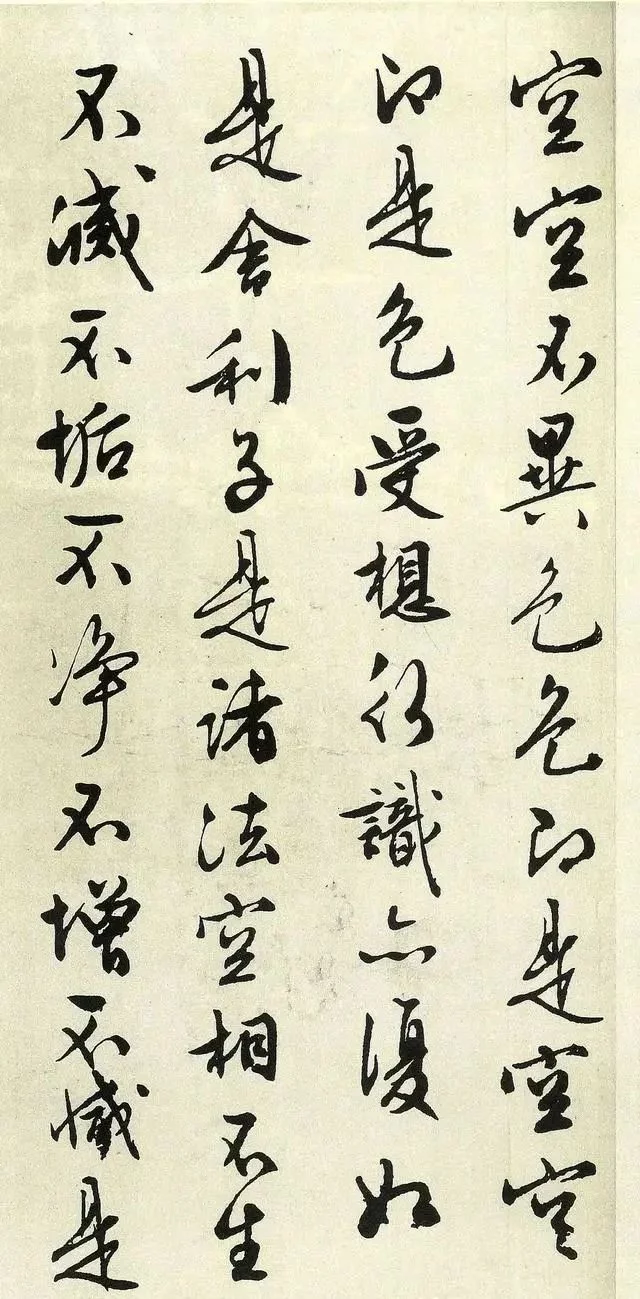 空空不異色色即是空空
即是色受想行識亦復如
是舍利子是諸法空相不生
不滅不垢不净不增不減是